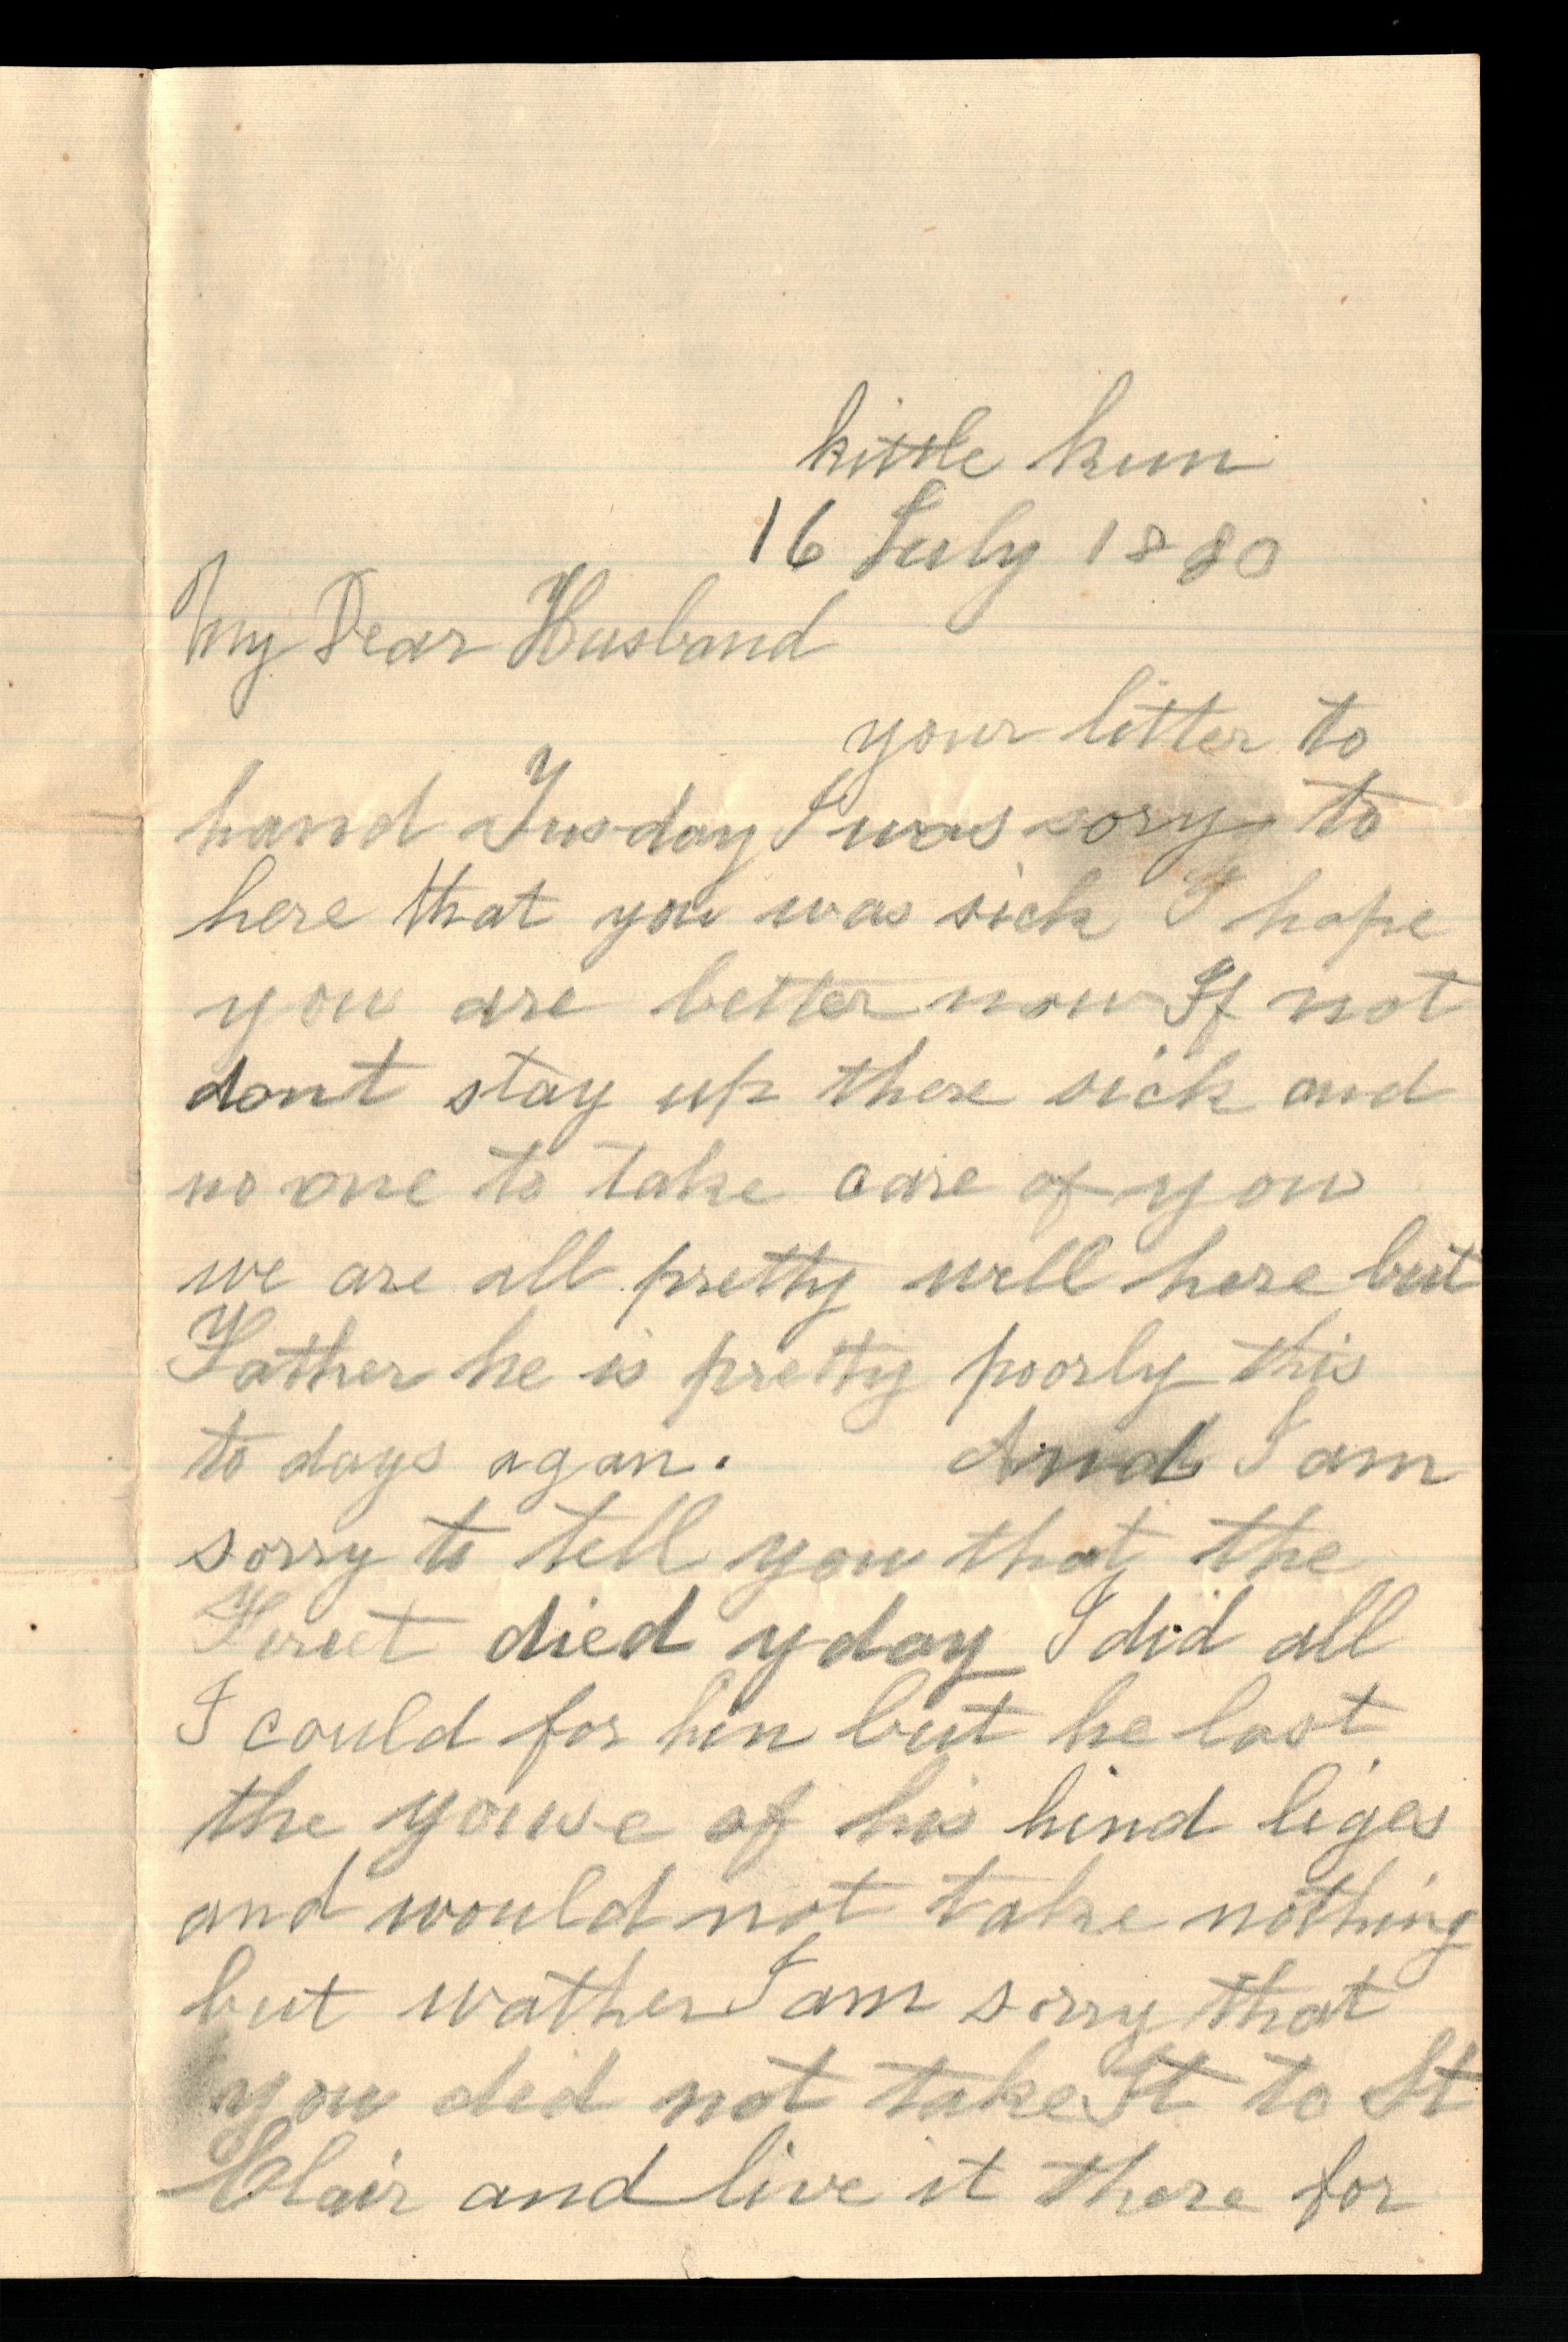 kittle kun
16 July 1880
My Dear Husband
your litter to
hand Tusday I was sory to
here that you was sick I hope
you are better now If not
dont stay up there sick and
no one to take care of you
we are all pretty well here but
Father he is pretty poorly this
to days agan. And I am
sorry to tell you that the
died yday I did all
I could for hin but he lost
the youse of his hind liges
and would not take nothing
but wather I am sorry that
you did not take It to St
Clair and live it there for